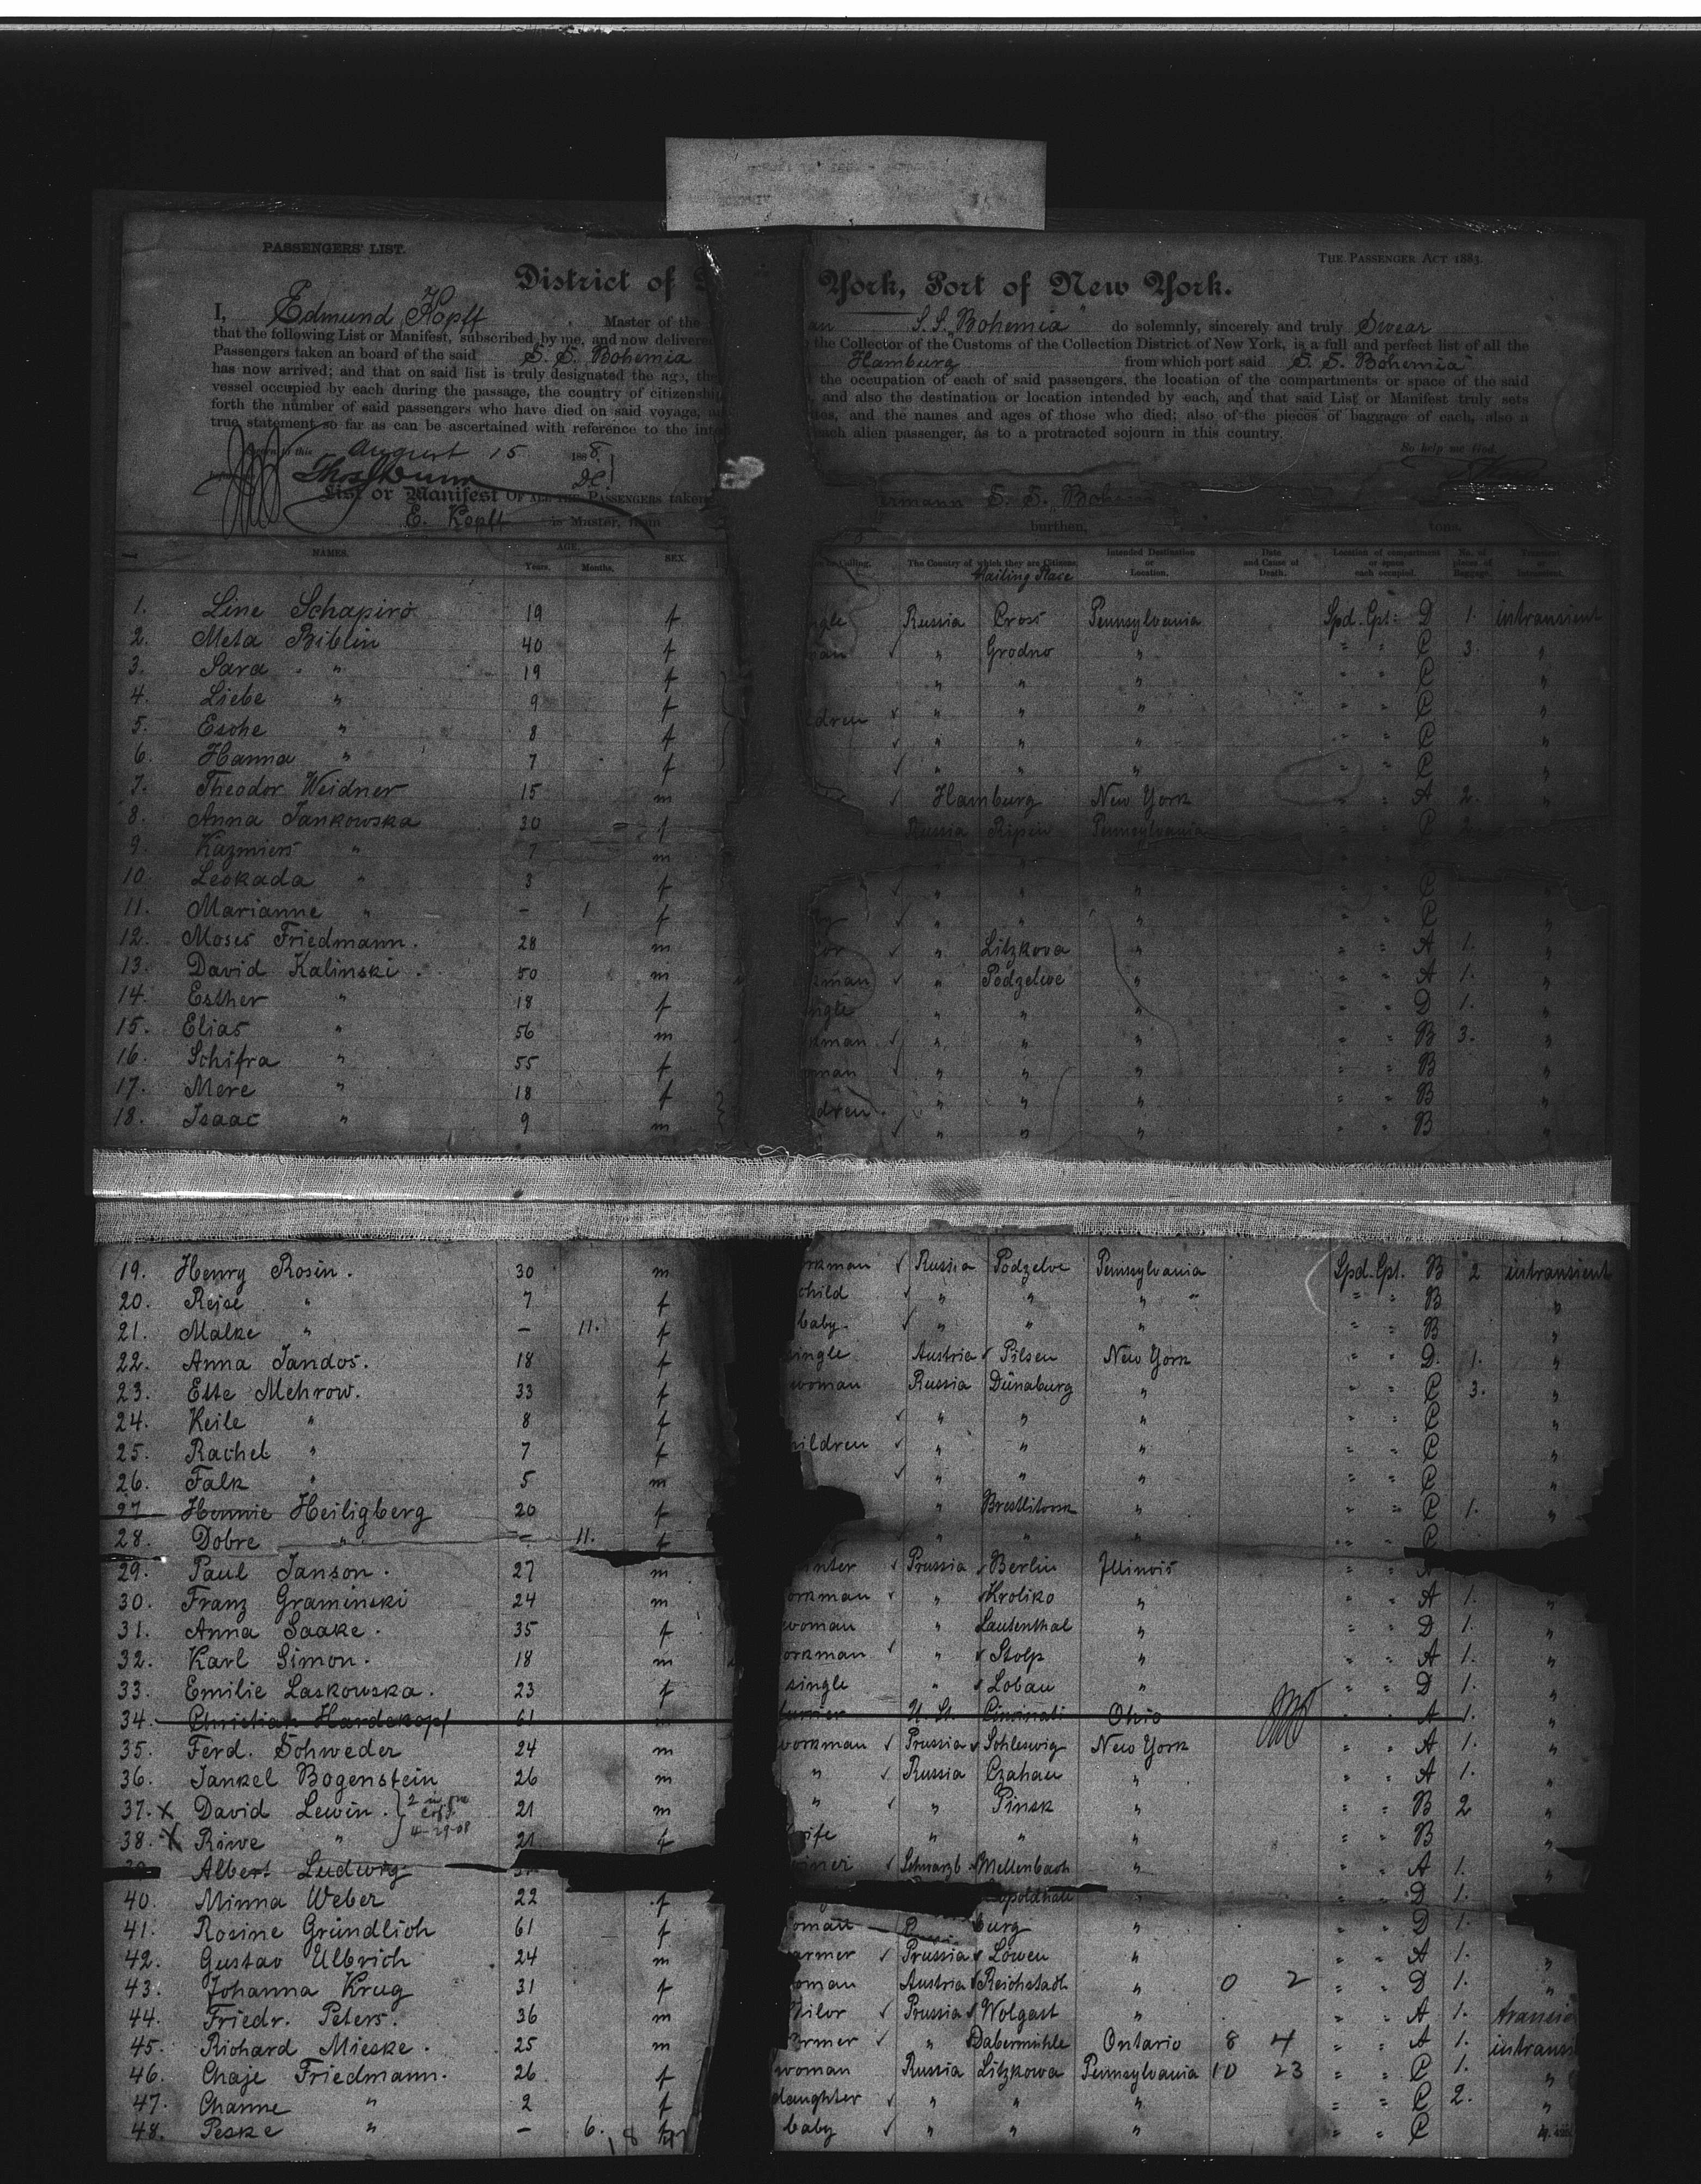 PASSENGERS' LIST. THE PASSENGER ACT 1883.
District of York, Port of New York.
I, Edmund Kopff Master of the S.S. "Bohemia" do solemnly, sincerely and truly Swear
that the following List or Manifest, subscribed by me, and now delivered the Collector of the Customs of the Collection District of New York, is a full and perfect list of all the
Passengers taken on board of the said S. S. Bohemia Hamburg from which port said S. S. Bohemia
has now arrived; and that on said list is truly designated the age, the the occupation of each of said passengers, the location of the compartments or space of the said
vessel occupied by each during the passage, the country of citizenship and also the destination or location intended by each, and that said List or Manifest truly sets
forth the number of said passengers who have died on said voyage, and the names and ages of those who died; also of the pieces of baggage of each, also a
true statement so far as can be ascertained with reference to the each alien passenger, as to a protracted sojourn in this country.
So help me God.
to this August 15 1888
List or Manifest OF ALL THE PASSENGERS taken S. S.
E. Kopff is Master, from burthen, tons.
NAMES. AGE. SEX. The Country of which they are Citizens. Intended Destination or Location. Date and Cause of Death. Location of compartment or space each occupied. No. of pieces of Baggage.
Years. Months. Mailing Place
1. Line Schapiro 19 f Russia Cross Pennsylvania Spd. Cpt: D 1. intransient
2. Meta Biblin 40 f " Grodno " " " C 3. "
3. Sara " 19 f " " " " " C "
4. Liebe " 9 f " " " " " C "
5. Esche " 8 f " " " " " C "
6. Hanna " 7 f " " " " " C "
7. Theodor Weidner 15 m Hamburg New York " " A 2. "
8. Anna Jankowska 30 f Russia Ripin Pennsylvania C 2.
9. Kazmiers " 7 m
10. Leokada " 3 f " " " " " C "
11. Marianne " - 1 f " " " " " C "
12. Moses Friedmann. 28 m " Litzkova " " " A 1. "
13. David Kalinski. 50 m " Podzelve " " " A 1. "
14. Esther " 18 f " " " " " D 1. "
15. Elias " 56 m " " " " " B 3. "
16. Schifra " 55 f " " " " " B "
17. Mere " 18 f " " " " " B "
18. Isaac " 9 m " " " " " B "
19. Henry Rosin. 30 m Russia Podzelve Pennsylvania Spd. Cpt. B 2 intransient
20. Rejse " 7 f child " " " " " B "
21. Malke " - 11. f baby. " " " " " B "
22. Anna Jandos. 18 f Austria Pilsen New York " " D. 1. "
23. Ette Mehrow. 33 f woman Russia Dünaburg " " " C 3. "
24. Keile " 8 f " " " " " C "
25. Rachel " 7 f " " " " " C "
26. Falk " 5 m " " " " " C "
27 Hennie Heiligberg 20 f " Brestlitowsk " " " C 1. "
28. Dobre " - 11. f " " " " " C
29. Paul Janson. 27 m Prussia Berlin Illinois
30. Franz Graminski 24 m " Kroliko " " " A 1. "
31. Anna Saake. 35 f woman " Lautenthal " " " D 1. "
32. Karl Simon. 18 m " Stolp " " " A 1. "
33. Emilie Laskowska. 23 f single " Lobau " " " D 1. "
34. Christian Hardekopf 61 m U. St. Cincinati Ohio A 1. "
35. Ferd. Schweder 24 m workman Prussia Schleswig New York " " A 1. "
36. Jankel Bogenstein 26 m " Russia Czahau " " " A 1. "
37. X David Lewin. 21 m " " Pinsk " " " B 2 "
4-29-08
38. X Riwe " 21 f " " " " " B "
Albert Ludwig Schwarzb. Mellenbach " " " A 1. "
40. Minna Weber 22 f " " D 1. "
41. Rosine Gründlich 61 f burg " " " D 1. "
42. Gustav Ulbrich 24 m Prussia Löwen " " " A 1. "
43. Johanna Krug 31 f Austria Reichstadt " 0 2 " " D 1. "
44. Friedr. Peters. 36 m Prussia Wolgast " " " A 1.
45. Richard Mieske. 25 m " Dabermühle Ontario 8 4 " " A 1.
46. Chaje Friedmann. 26 f woman Russia Litzkowa Pennsylvania 10 23 " " C 1. "
47. Channe " 2 f daughter " " " " " C 2. "
48. Peske " - 6. f baby " " " " " C